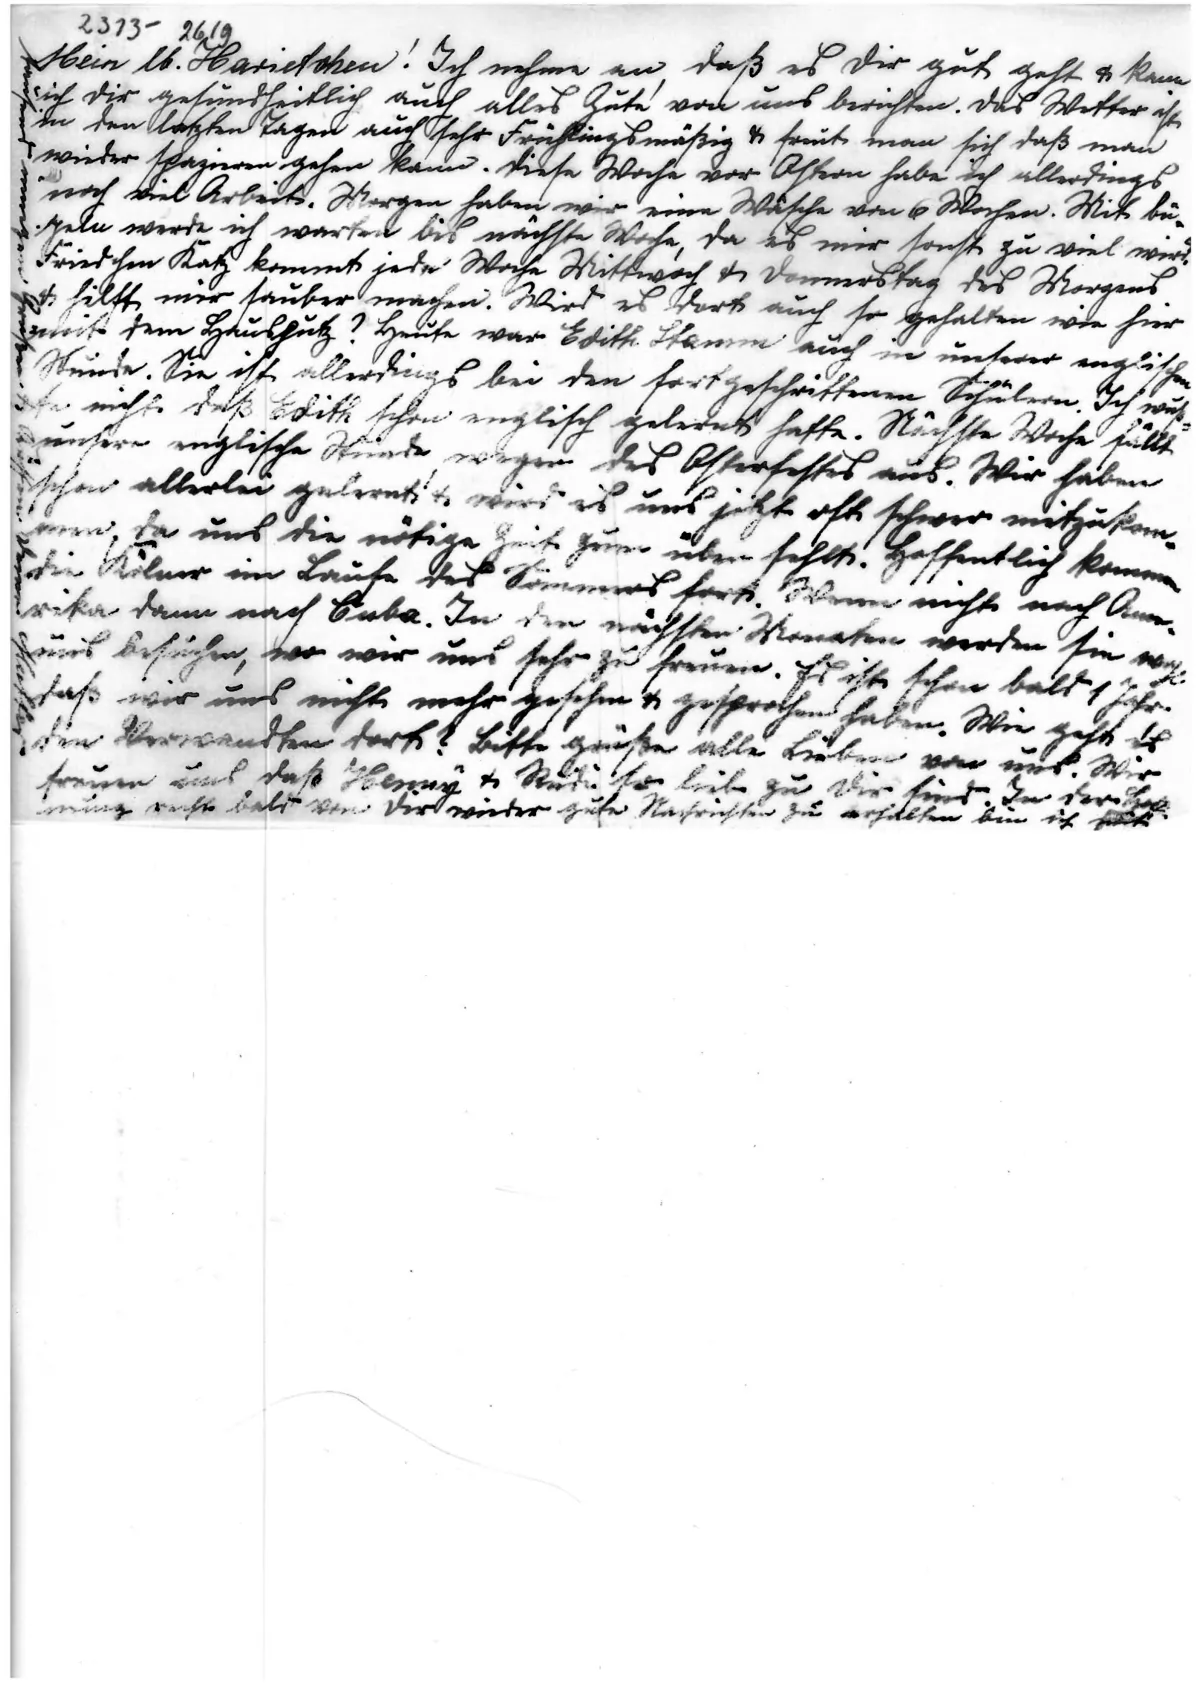 2373- 2619
Mein lb. Harietchen! Ich nehme an, daß es Dir gut geht & kann
ich Dir gesundheitlich auch alles Gute von uns berichten. Das Wetter ist
in den letzten Tagen auch sehr Frühlingsmäßig & freut man sich daß man
wieder spazieren gehen kann. Diese Woche vor Ostern habe ich allerdings
noch viel Arbeit. Morgen haben wir eine Wäsche von 6 Wochen. Mit bü-
geln werde ich warten bis nächste Woche, da es mir sonst zu viel wird.
Friedchen Katz kommt jede Woche Mittwoch & Donnerstag des Morgens
& hilft mir sauber machen. Wird es dort auch so gehalten wie hier
mit dem Hausputz? Heute war Edith Stamm auch in unserer englischen
Stunde. Sie ist allerdings bei den fortgeschrittenen Schülern. Ich wuß-
te nicht daß Edith schon englisch gelernt hatte. Nächste Woche fällt
unsere englische Stunde wegen des Osterfestes aus. Wir haben
schon allerlei gelernt & wird es uns jetzt oft schwer mitzukom-
men, da uns die nötige Zeit zum üben fehlt. Hoffentlich kommen
die Kölner im Laufe des Sommers fort. Wenn nicht nach Ame-
rika dann nach Cuba. In den nächsten Monaten werden sie wohl
uns besuchen, wo wir uns sehr zu freuen. Es ist schon bald 1 Jahr
daß wir uns nicht mehr gesehen & gesprochen haben. Wie geht es
den Verwandten dort? Bitte grüße alle Lieben von uns. Wir
freuen uns daß Henny & Rudi so lieb zu Dir sind. In der Hoff-
nung recht bald von Dir wieder gute Nachrichten zu erhalten bin ich mit